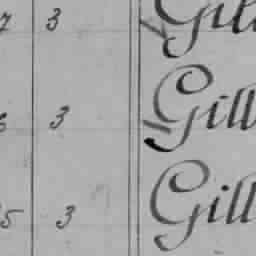 7 3 Gill
3 Gill
5 3 Gill